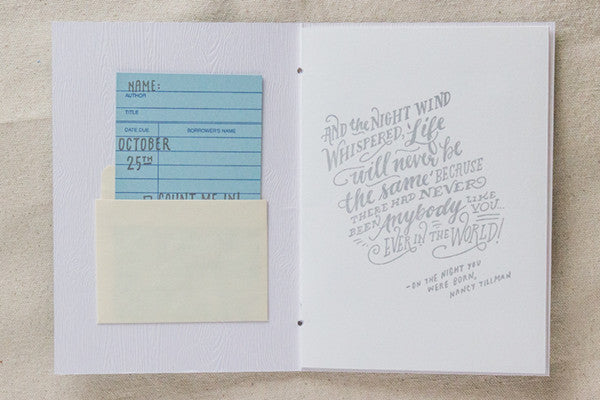 NAME:
AUTHOR
TITLE
DATE DUE BORROWER'S NAME
OCTOBER
25TH
COUNT ME IN!
AND the NIGHT WIND
WHISPERED, 'Life
will never be
the same' BECAUSE
THERE HAD NEVER
BEEN anybody LIKE YOU...
EVER IN THE WORLD!
-ON THE NIGHT YOU
WERE BORN,
NANCY TILLMAN